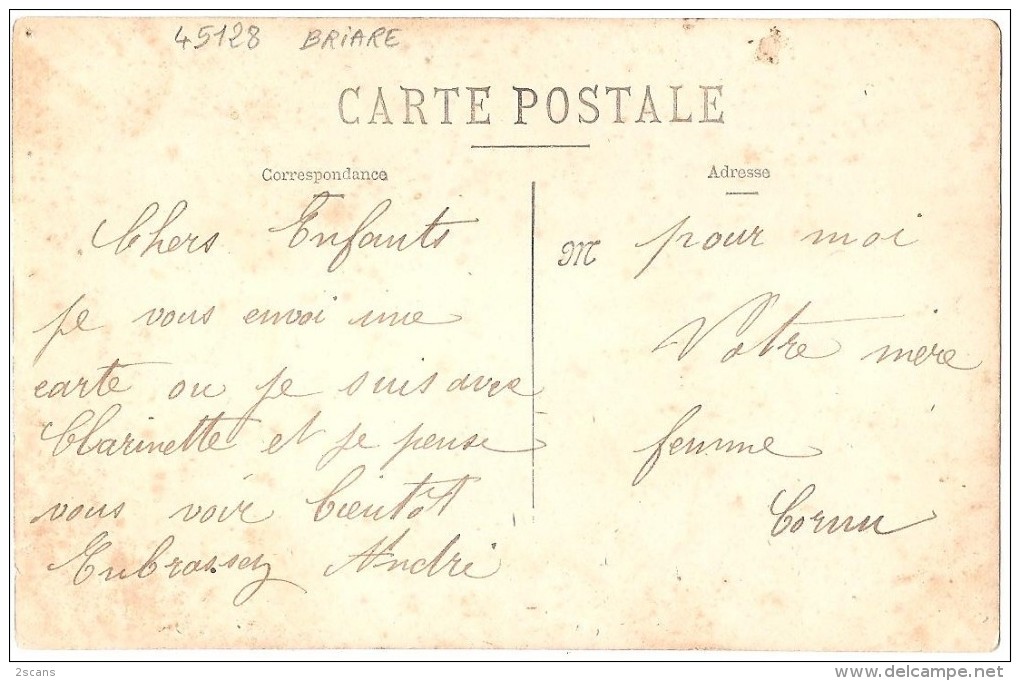 45128 BRIARE
CARTE POSTALE
Correspondance
Adresse
Chers Enfants
je vous envoi une
carte ou je suis avec
Clarinette et je pense
vous voir bientôt
Embrassez André
M pour moi
Votre mère
femme
Cornu
2scans
www.delcampe.net